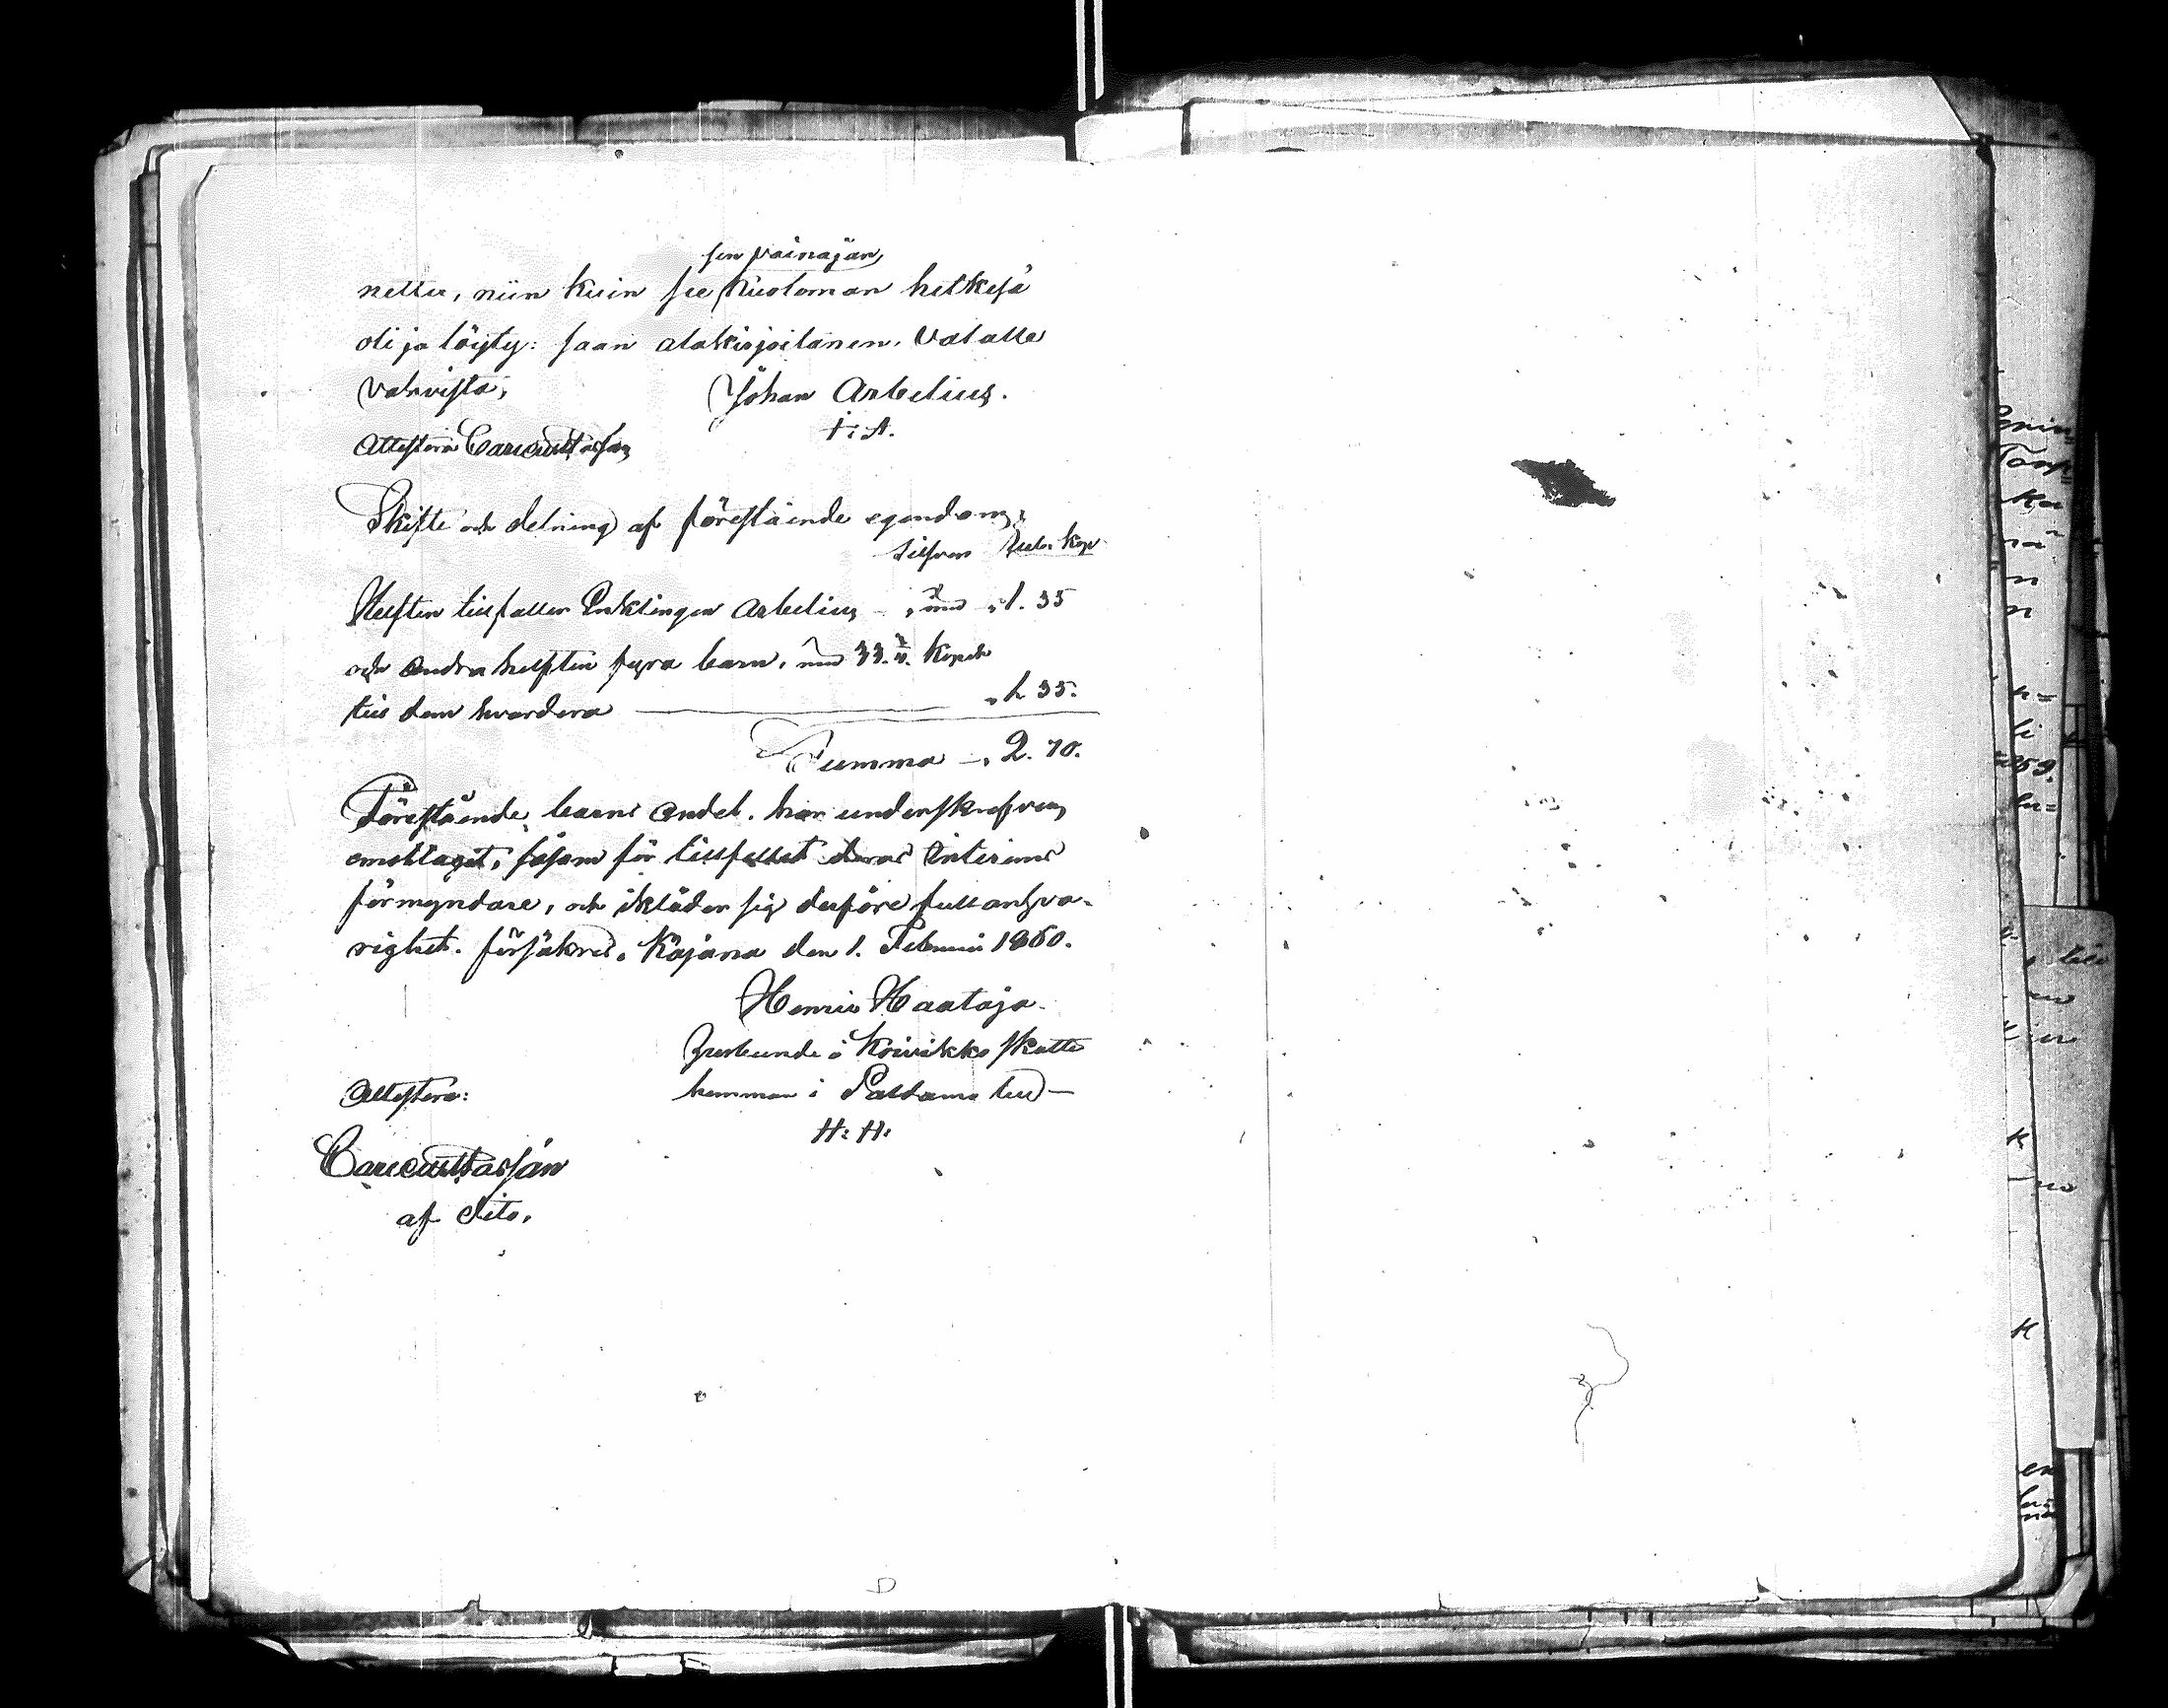 sen vainajan
nettu, niin kuin see kuoloman hetkesä
oli ja löyty: saan alakirjoitanen. Valalle
vahvista, Johan Arbelius.
I: A.
Attestera
Skifte och delning af förestående egendom,
Silfver Rub. Kop.
Helften tillfaller Enklingen Arbelius — 1. 35
och andra helften fyra barn, med 33. ¾. Kopek
till dem hvardera — 1. 35.
Summa — 2. 70.
Förestående barns andel. har underskrefven
emottaget, såsom för tillfellet deras Interims
förmyndare, och ikläder sig derföre full ansva-
righet. försäkras. Kajana den 1. Februari 1860.
Henric Haataja
Bonde å Koivikko skatte
Attestera: hemman i Paldamo
H: H:
af dito.